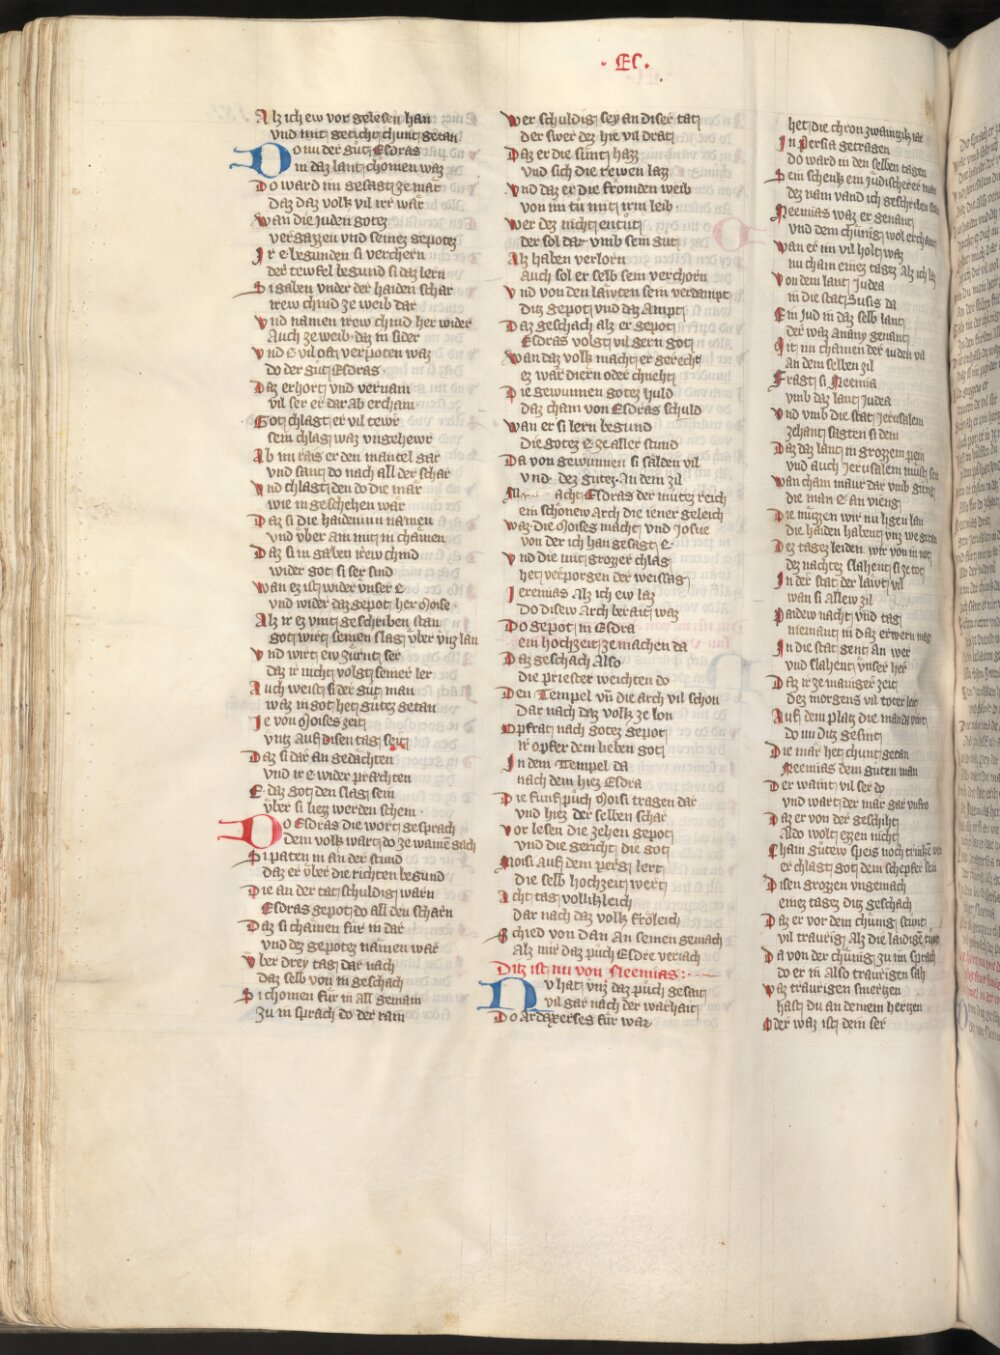 · EC ·
Alz ich ew vor gelesen han
vnd mit geticht chunt getan
Do nu der gut Esdras
in daz lant chomen waz
Do ward im gesagt ze mär
daz daz volk vil irr wär
Wan die Juden gotez
vergazzen vnd seinez gepotez
Ir e begunden si verchern
der tewfel begund si daz lern
Si gaben vnder der haiden schar
irew chind ze weib dar
Vnd namen irew chind her wider
Auch ze weib daz in sider
Vnd e vil oft verpoten waz
do der gut Esdras
Daz erhort vnd vernam
vil ser er dar ab ercham
Got chlagt er vil tewr
sein chlag waz vngehewr
Ab im rais er den mantel gar
vnd sant do nach all der schar
Vnd chlagt den do die mär
wie in geschehen wär
Daz si die haideninn namen
vnd vber am mit in chamen
Daz si in gaben irew chind
wider got si ser sind
Wan ez ist wider vnser e
vnd wider daz gepot her Moise
Alz ir ez vint geschriben stan
got wirt seinen slag vber vnz lan
Vnd wirt ew zürnt ser
daz ir nicht volgt seiner ler
Auch weist si der gut man
waz in got het gutez getan
Ie von Moises zeit
vntz auf disen tag seit
Daz si dar an gedächten
vnd ir e wider prächten
E daz got den slag sein
vber si liez werden schein
Do Esdras die wort gesprach
dem volk wart do ze wainē gach
Si paten in an der stund
daz er vber die richten begund
Die an der tat schuldig warn
Esdras gepot do all den scharn
Daz si chämen für in dar
vnd dez gepotez nämen war
Vber drey tag dar nach
daz selb von in geschach
Si chomen für in all gemain
zu in sprach do der rain
Wer schuldig sey an diser tat
der swer dez hie vil drat
Daz er die sünt hazz
vnd sich die rewen lazz
Vnd daz er die fromden weib
von im tü mit irm leib
Wer dez nicht entüt
der sol dar vmb sein gut
Alz haben verlorn
Auch sol er selb sein verchorn
Vnd von den läwten sein verdampt
ditz gepot vnd daz Ampt
Daz geschach alz er gepot
Esdras volgt vil gern got
Wan daz volk macht er gerecht
ez wär diern oder chneht
Die gewunnen gotez huld
daz cham von Esdras schuld
Wan er si lern begund
die gotez e ze aller stund
Da von gewunnen si sälden vil
vnd dez gutez an dem zil
acht Esdras der mutez reich
ein schonew arch die iener geleich
Waz die Moises macht vnd Josue
von der ich han gesagt e
Vnd die mit grozzer chlag
het verporgen der weissag
Jeremias Alz ich ew laz
Do disew Arch berait waz
Do gepot in Esdra
ein hochzeit ze machen da
Daz geschach Also
die priester weichten do
Den Tempel vn̄ die arch vil schon
Dar nach daz volk ze lon
Opfrat nach gotez gepot
ir opfer dem lieben got
In dem Tempel da
nach dem hiez Esdra
Die fünf püch Moisi tragen dar
vnd hiez der selben schar
Vor lesen die zehen gepot
vnd die gericht die got
Moisi auf dem perg lert
die selb hochzeit wert
Acht tag vollikleich
dar nach daz volk frőleich
Schied von dan an seinen gemach
Alz mir daz püch Esdre veriach
Ditz ist nu von Neemias
Nu hat vnz daz püch gesait
vil gar nach der warhait
Do Ardaxerses für war
het die chron zwaintzik iar
In Persia getragen
do ward in den selben tagen
Sein schenk ein Jüdischer er man
dez nam vand ich geschriben stan
Neemias waz er genant
vnd dem chünig wol erchant
Wan er im vil holt waz
nu cham einez tagez Alz ich laz
Von dem lant Judea
in die stat Susis da
Ein Jud in daz selb lant
der waz Anany genant
Mit im chamen der iuden vil
an dem selben zil
Fragt si Neemia
vmb daz lant Judea
Vnd vmb die stat Jerusalem
zehant sagten si dem
Daz daz lant in grozzem pein
vnd auch Jerusalem müst sein
Wan cham maur dar vmb gieng
die man e an vieng
Die müzzen wir nu ligen lan
die haiden habent vnz we getan
Dez tagez leiden wir von in not
dez nachtez slahent si ze tot
In der stat der läwt vil
wan si Allew zil
Paidew nacht vnd tag
niemant in daz erwern mag
In die stat gent an wer
vnd slahent vnser her
Daz ir ze maniger zeit
dez morgens vil toter leit
Auf dem platz die man da vint
do nu ditz gesint
Die mär het chunt getan
Neemias dem guten man
Der waint vil ser do
vnd wart der mär gar vnfro
Daz er von der geschiht
Aldo wolt ezzen nicht
Cham gütew speis noch trinkē wein
er chlagt got dem schepfer sein
Disen grozzen vngemach
einez tagez ditz geschach
Daz er vor dem chünig stünt
vil traurig Alz die laidigē tünt
Da von der chünig zu im sprach
do er in Also traurigen sah
Waz traurigen smertzen
hast du an deinem hertzen
Oder waz ist dem ser